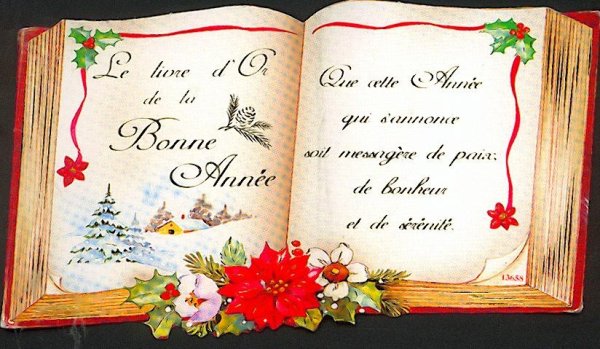 Le livre d'Or
de la
Bonne
Année
Que cette Année
qui s'annonce
soit messagère de paix,
de bonheur
et de sérénité.
13658